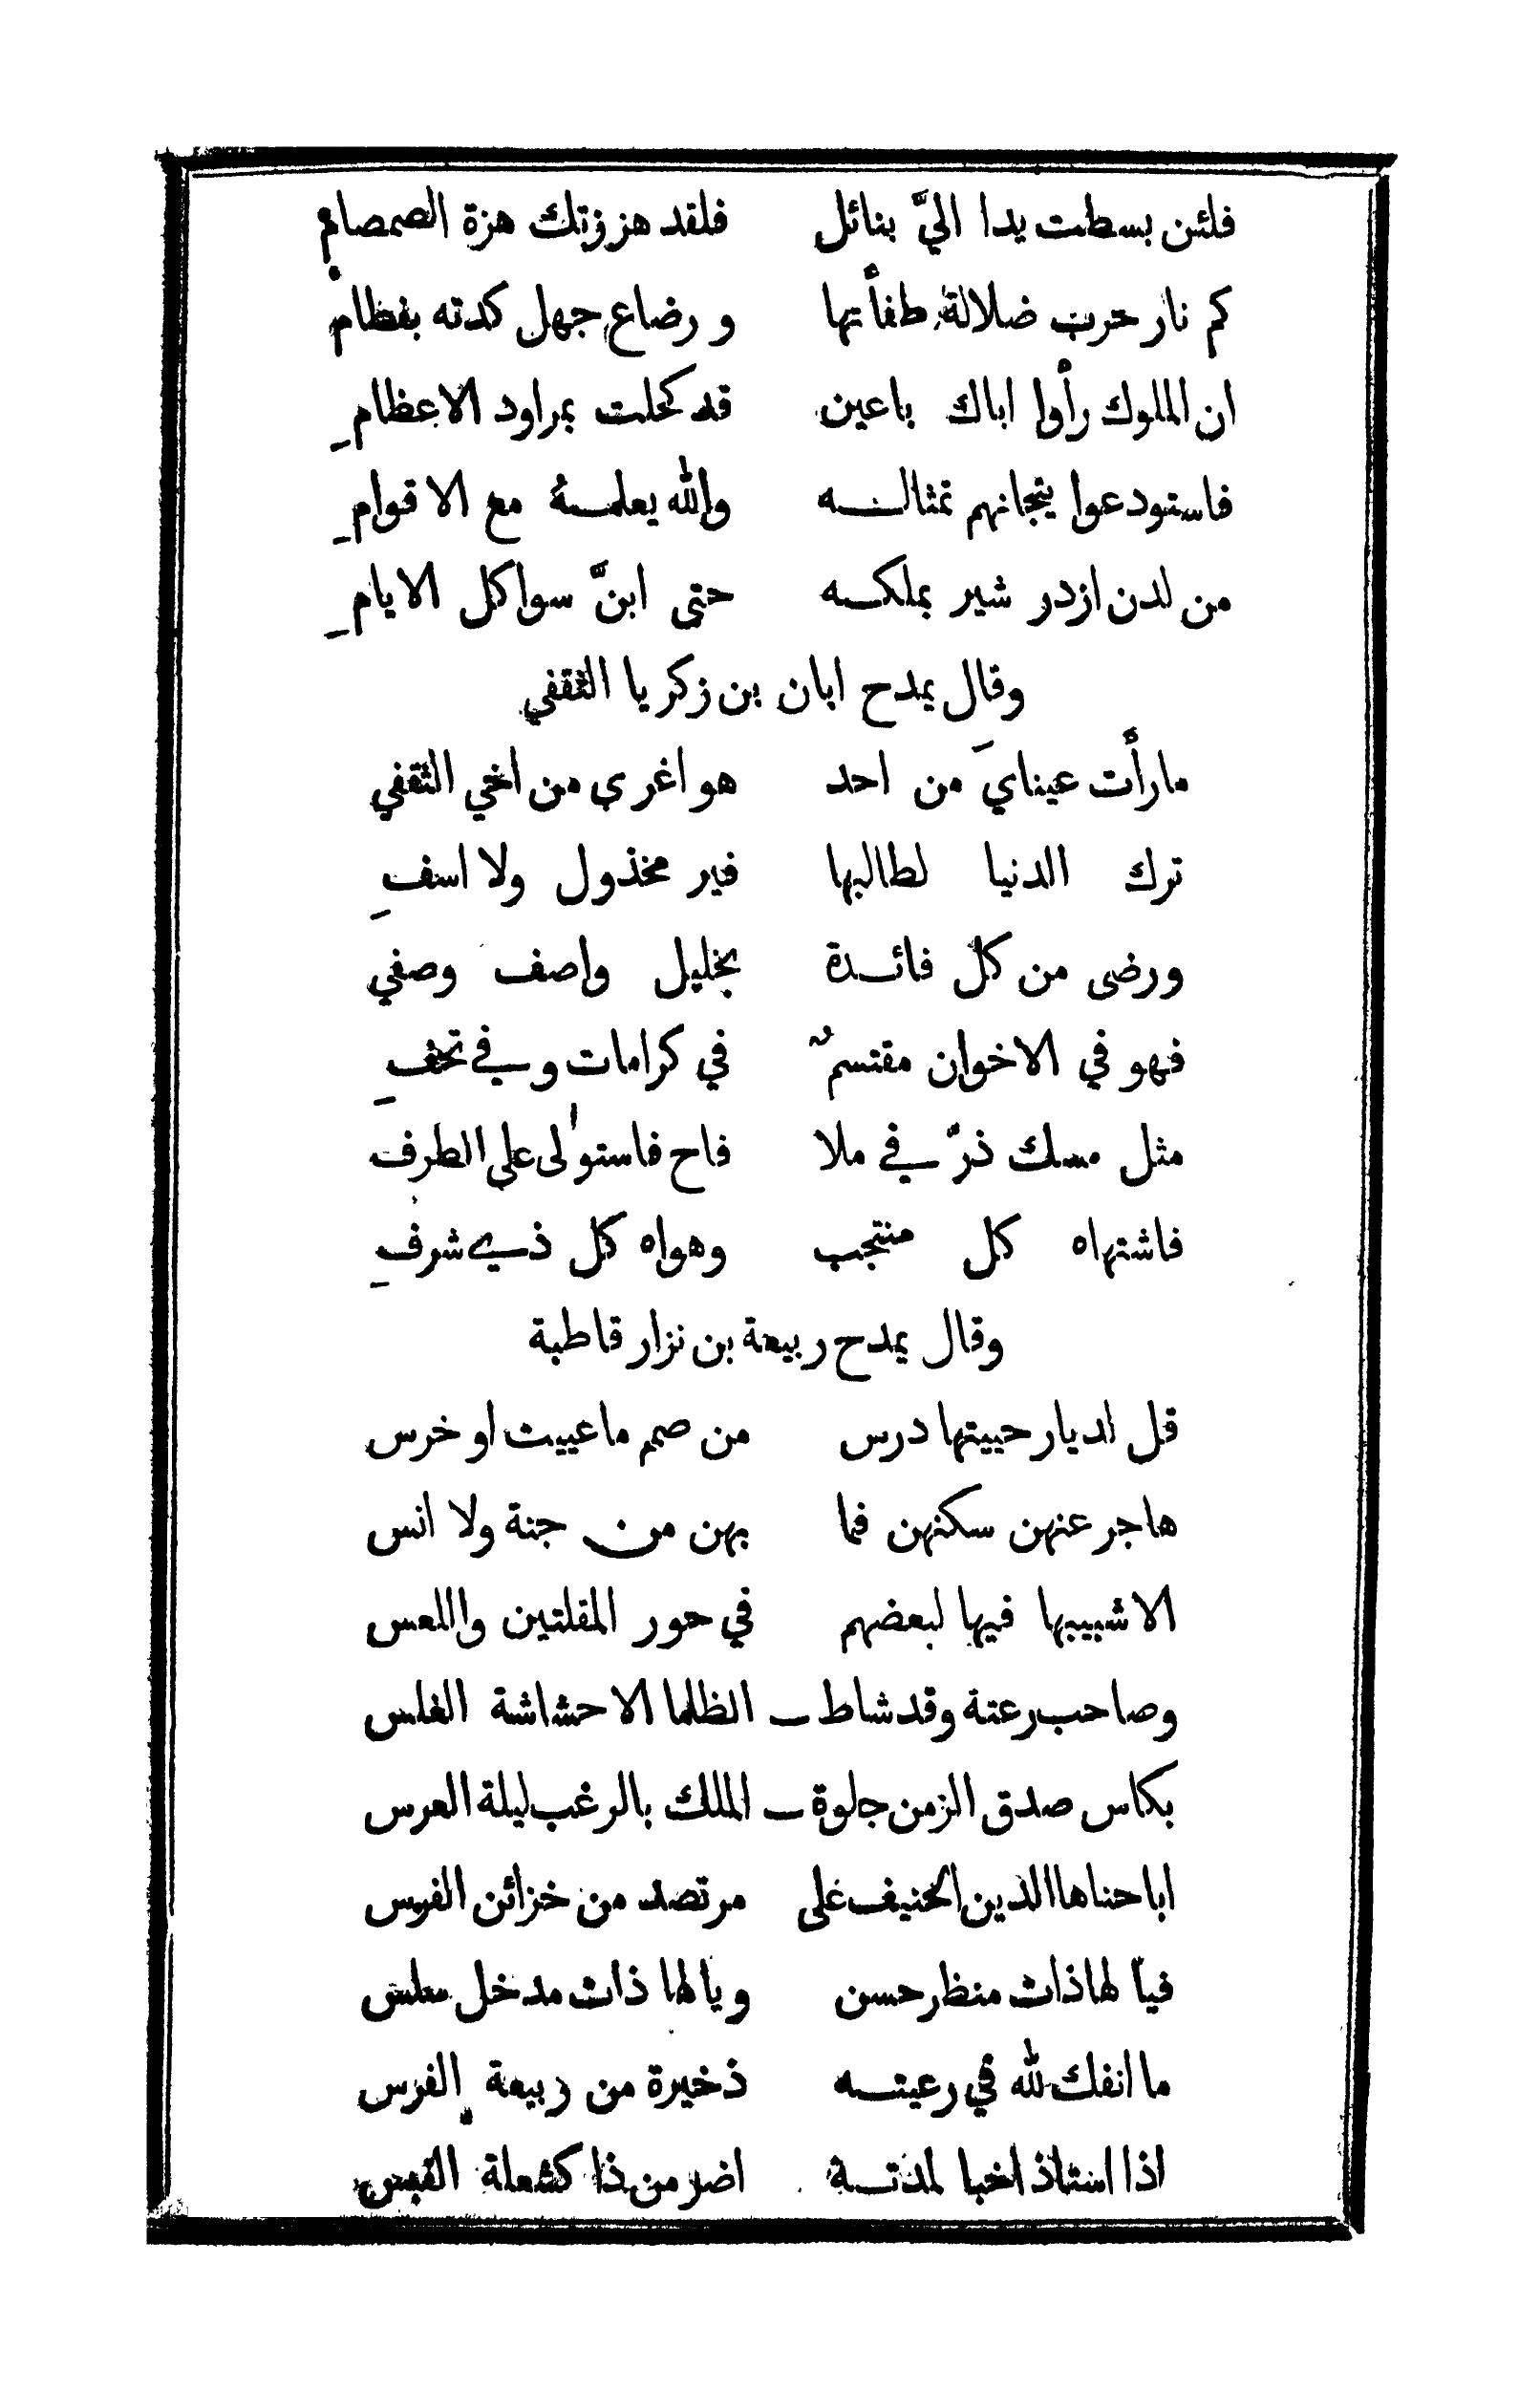 فلئن بسطت يدا اليَّ بنائل فلقد هززتك هزة الصمصام
كم نار حرب ضلالة طفأتها و رضاع جهل كدته بفظام
ان الملوك رأوا اباك باعين قد كحلت بمراود الاعظامِ
فاستودعوا يتجانهم تمثالـــه والله يعلمـــهُ مع الاقوامِ
من لدن ازدر شير بملكـــه حتى ابنَّ سواكل الايامِ
وقال يمدح ابان بن زكريا الثقفي
مارأت عينايَ من احد هو اغرى من اخي الثقفي
ترك الدنيا لطالبها فير مخذول ولا اسفِ
ورضى من كل فائـــدة بخليل واصف وصفي
فهو في الاخوان مقتسمٌ في كرامات وفي تحفِ
مثل مسك ذرَّ في ملا فاح فاستولى على الطرف
فاشتهاه كل منتجب وهواه كل ذي شرفِ
وقال يمدح ربيعة بن نزار قاطبة
قل لديار حييتها درس من صمم ماعييت او خرس
هاجر عنهن سكنهن فما بهن من جنة ولا انس
الاشبيبها فيها لبعضهم في حور المقلتين واللعس
وصاحب رعتة وقد شاط ـ الظلما الاحشاشة الغلس
بكاس صدق الزمن جلوة ـ الملك بالرغب ليلة العرس
اباحناها الذين الحنيف على مرتصد من خزائن الفرس
فيا لهاذات منظر حسن ويالها ذات مدخل سلس
ما انفك لله في رعيتـــه ذخيرة من ربيعة الفرس
اذا استلذ اخبا لمذتـــة اضر من ذا كشعلة القبس